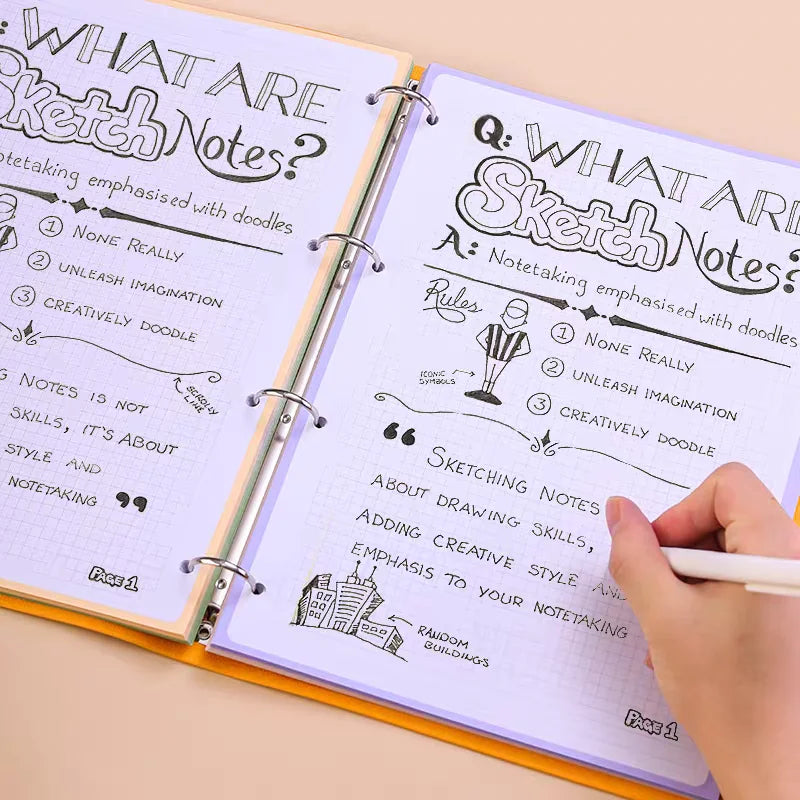 WHAT ARE
Sketch Notes?
Notetaking emphasised with doodles
1 NONE REALLY
2 UNLEASH IMAGINATION
3 CREATIVELY DOODLE
SCROLLY
LINE
NOTES IS NOT
SKILLS, IT'S ABOUT
STYLE AND
NOTETAKING ”
PAGE 1
Q: WHAT ARE
Sketch Notes?
A: Notetaking emphasised with doodles
Rules
1 NONE REALLY
2 UNLEASH IMAGINATION
3 CREATIVELY DOODLE
ICONIC
SYMBOLS
“ SKETCHING NOTES
ABOUT DRAWING SKILLS,
ADDING CREATIVE STYLE AND
EMPHASIS TO YOUR NOTETAKING
RANDOM
BUILDINGS
PAGE 1